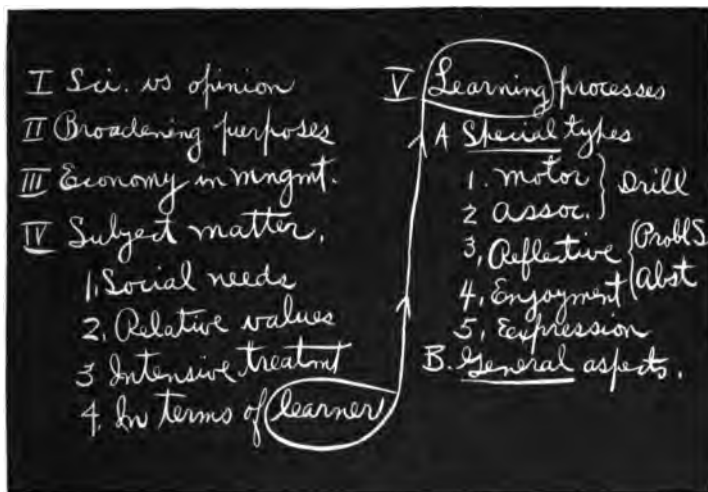 I Sci. vs opinion
II Broadening purposes
III Economy in mngmt.
IV Subject matter.
1. Social needs
2. Relative values
3 Intensive treatmt
4. In terms of learner
V Learning processes
A Special types
1. Motor
2 Assoc. } Drill
3. Reflective { Probl S
4. Enjoyment Abst
5. Expression
B. General aspects.